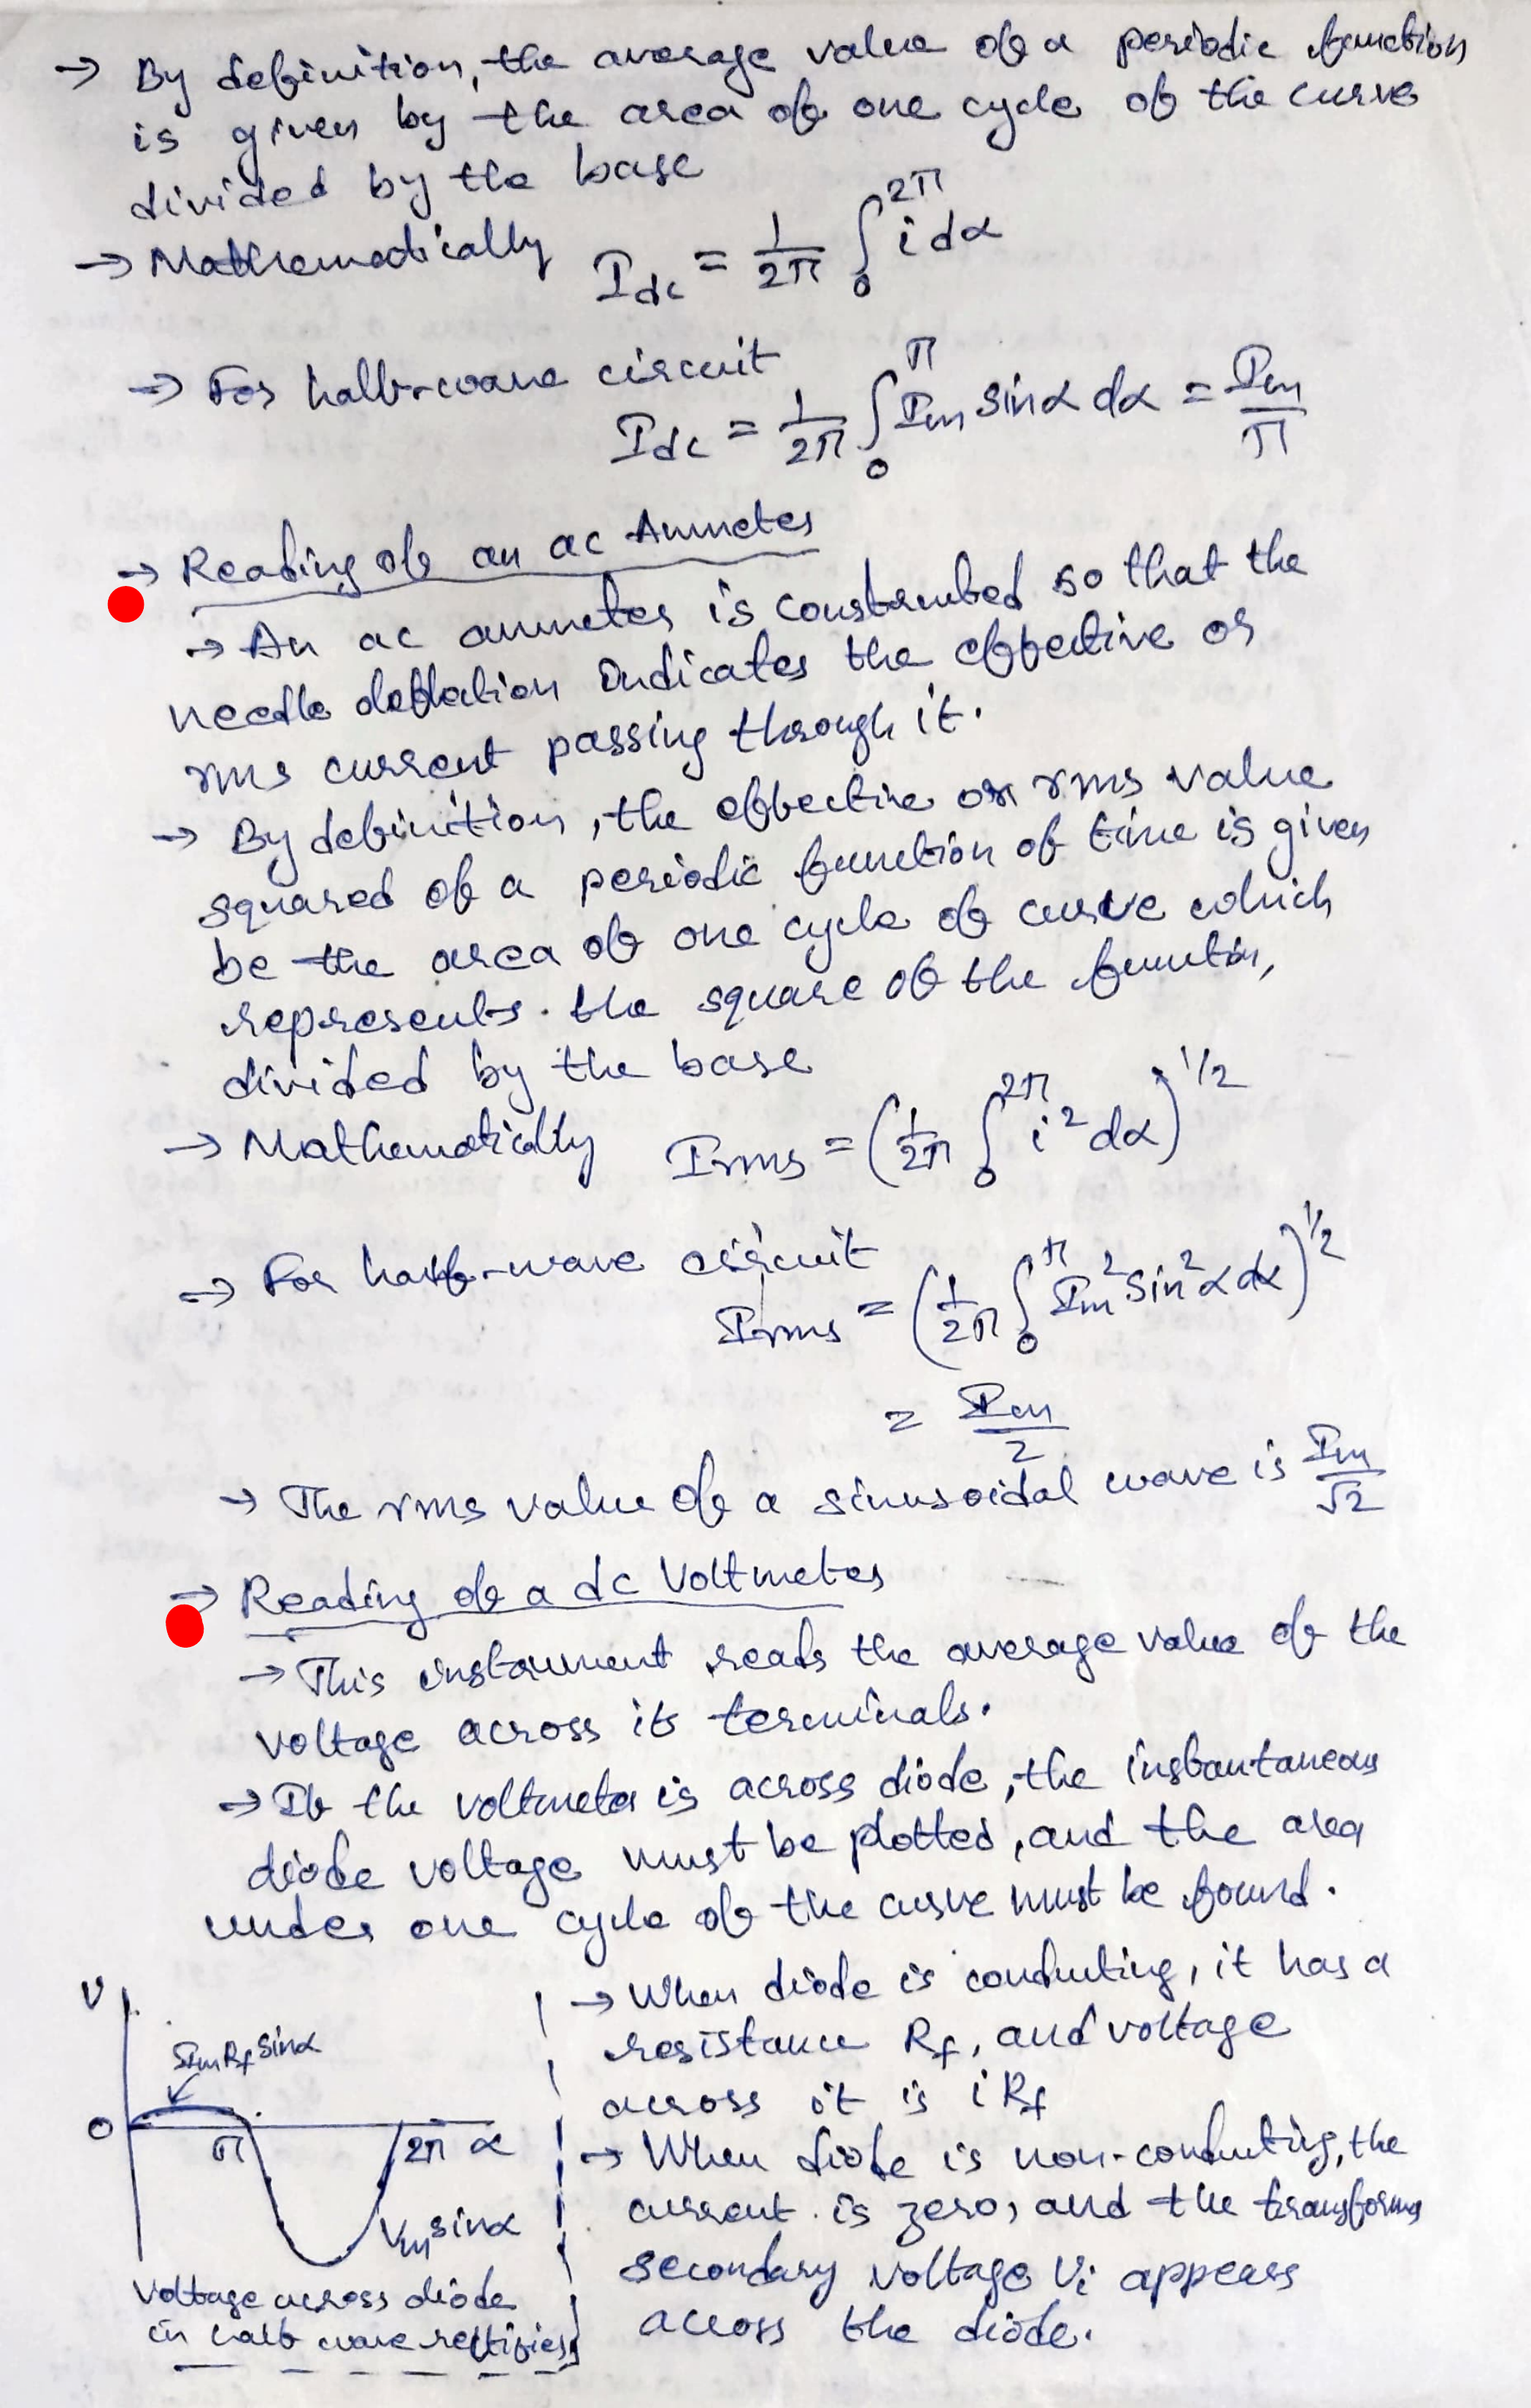 → By definition, the average value of a periodic function
is given by the area of one cycle of the curve
divided by the base
→ Mathematically I_dc = 1/2π ∫₀^2π i dα
→ For half-wave circuit
I_dc = 1/2π ∫₀^π I_m sinα dα = I_m/π
→ Reading of an ac Ammeter
→ An ac ammeter is constructed so that the
needle deflection indicates the effective or
rms current passing through it.
→ By definition, the effective or rms value
squared of a periodic function of time is given
be the area of one cycle of curve which
represents the square of the function,
divided by the base
→ Mathematically I_rms = (1/2π ∫₀^2π i² dα)^1/2
→ For half-wave circuit
I_rms = (1/2π ∫₀^π I_m² sin²α dα)^1/2
= I_m/2
→ The rms value of a sinusoidal wave is I_m/√2
→ Reading of a dc Voltmeter
→ This instrument reads the average value of the
voltage across its terminals.
→ If the voltmeter is across diode, the instantaneous
diode voltage must be plotted, and the area
under one cycle of the curve must be found.
V
I_m R_f sinα
0
π
2π α
V_m sinα
Voltage across diode
in half wave rectifier
→ When diode is conducting, it has a
resistance R_f, and voltage
across it is i R_f
→ When diode is non-conducting, the
current is zero, and the transforms
secondary voltage V_i appears
across the diode.